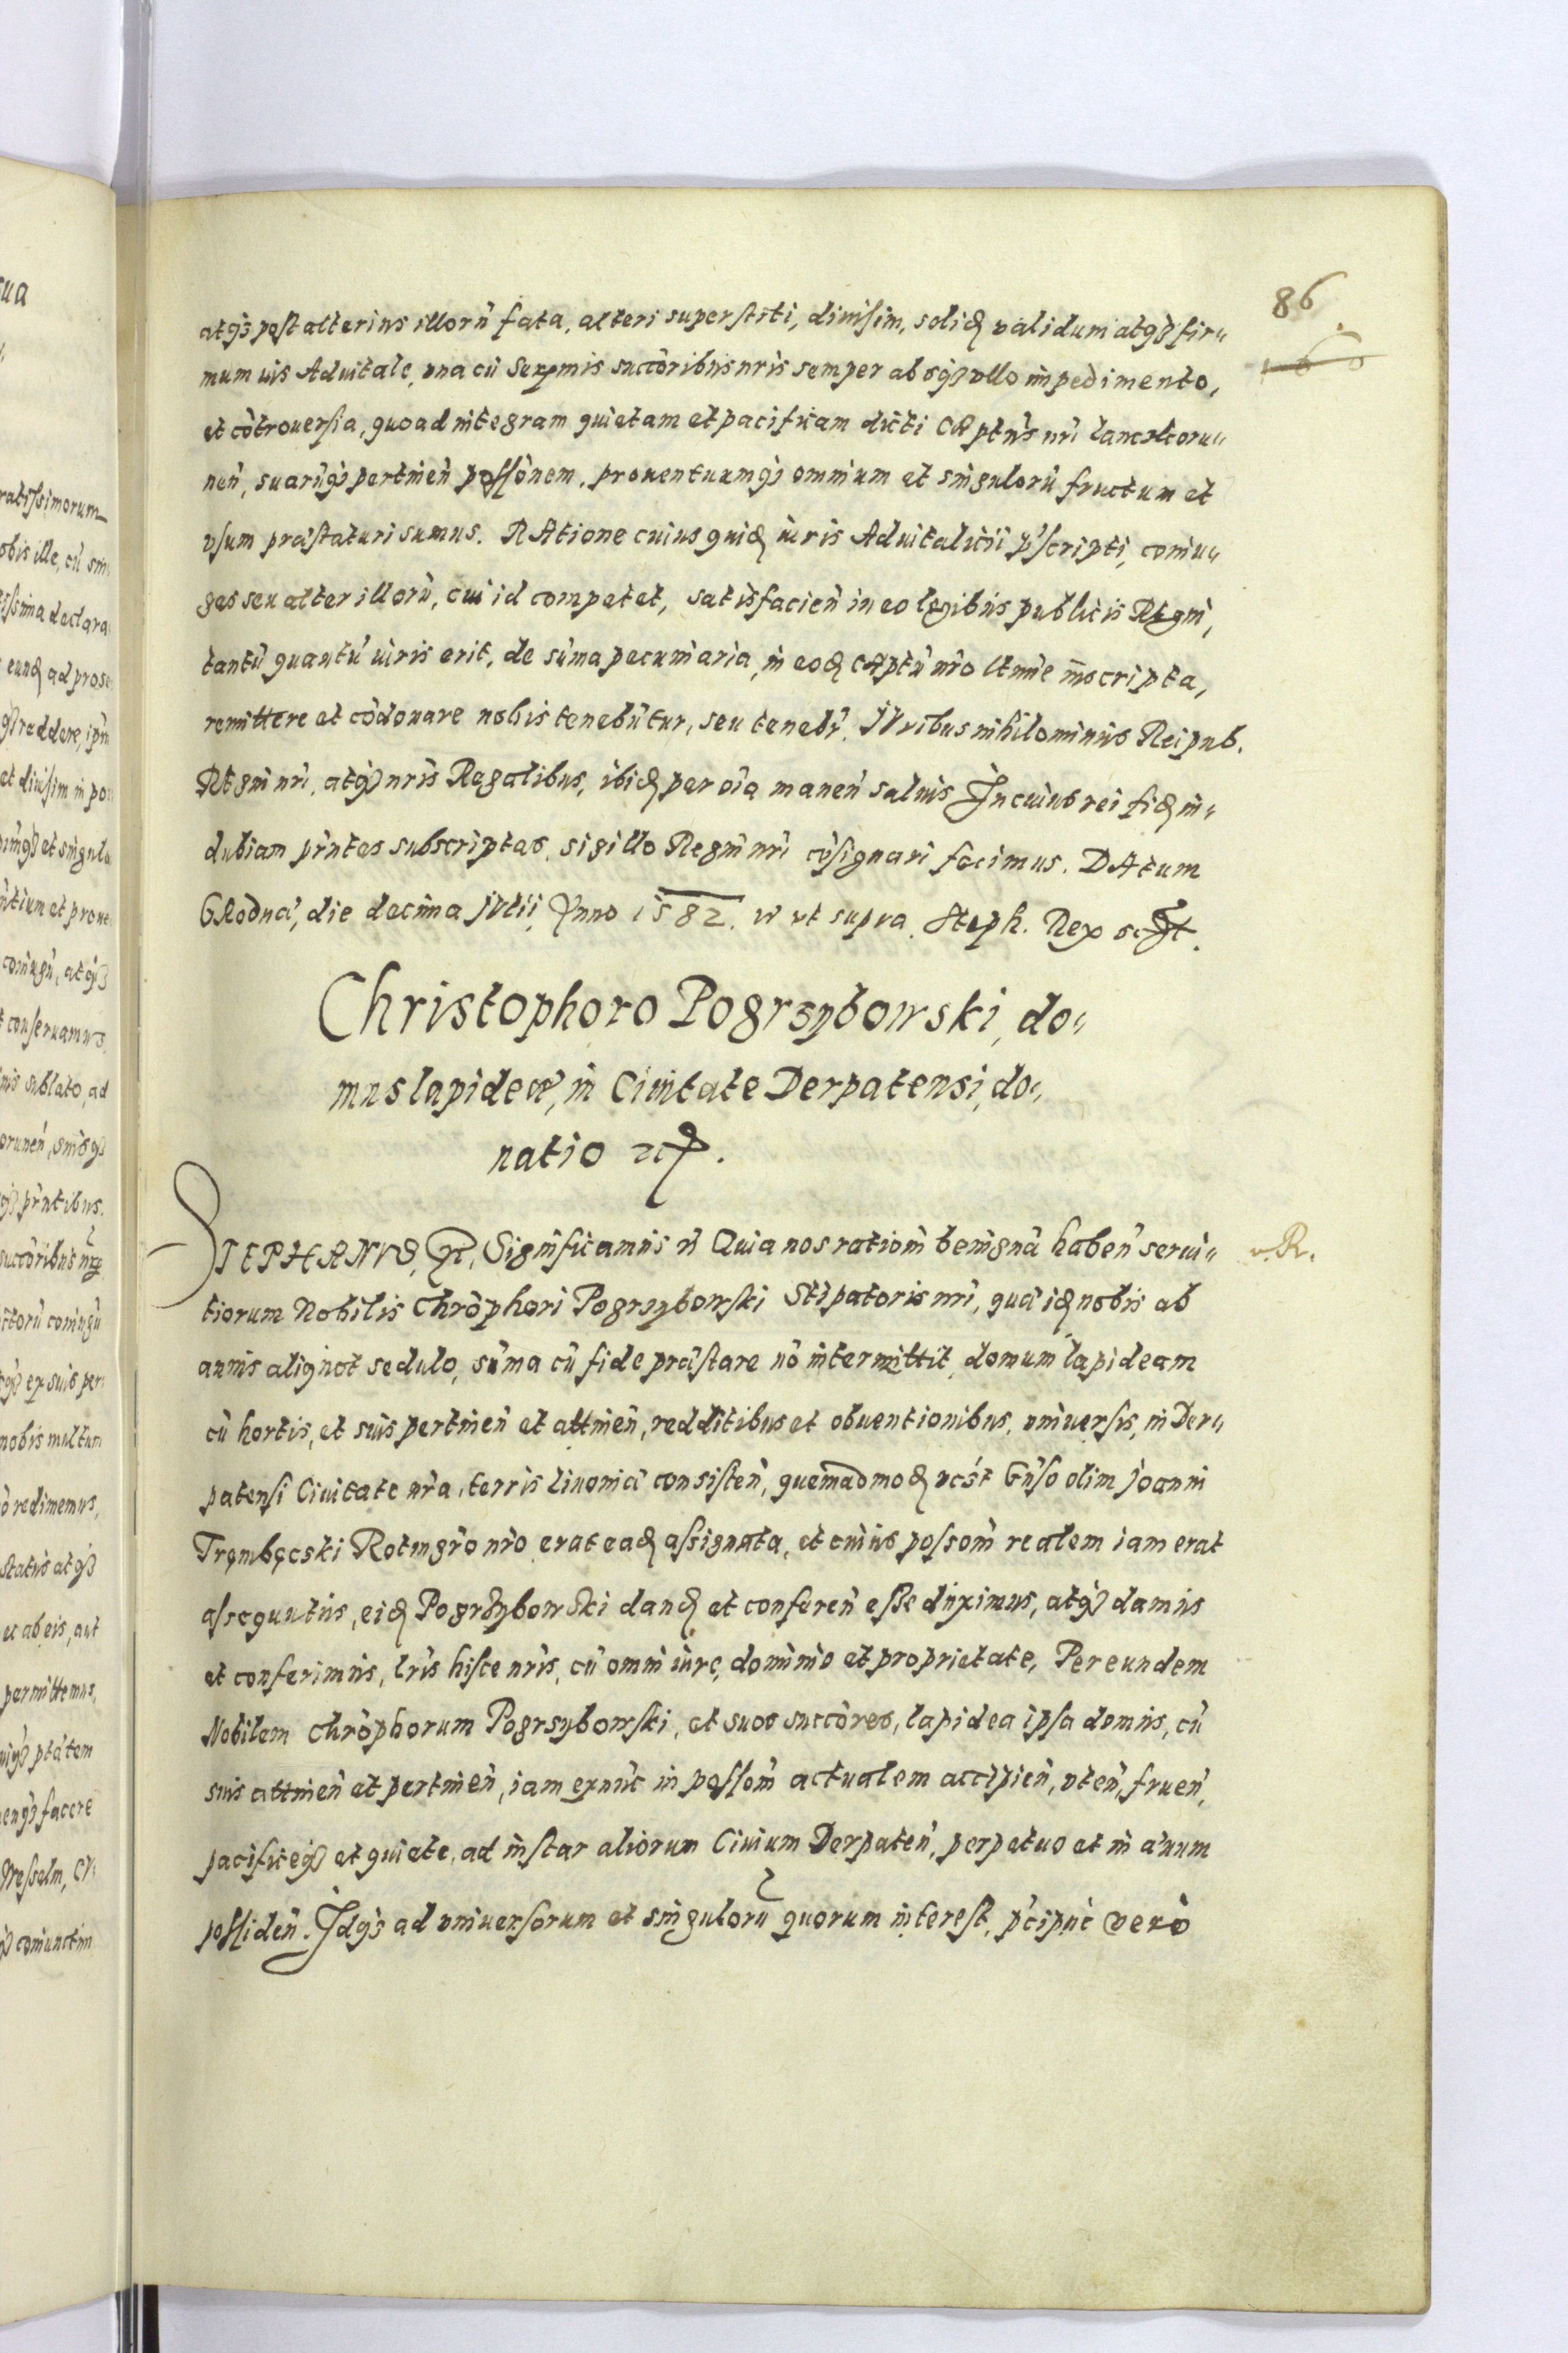 86
atq̃ post alterius illorũ fata, alteri superstiti, diuisim, solid validum atq̃ fir„
mum ius Aduitale, vna cũ Serẽmis succõribus nr̃is semper absq̃ vllo impedimento,
et cõtrouersia, quoad integram quietam et pacificam dicti Cãptũs nr̃i Lancscoru„
neñ, suarũq̃ pertineñ possõnem, prouentuumq̃ omnium et singulorũ fructum et
vsum præstaturi sumus. RAtione cuius quid iuris Aduitalitii p̃scripti, coniu„
ges seu alter illorũ, cui id competet, satisfacieñ in eo legibus publicis Regni,
tantũ quantũ iuris erit, de sũma pecuniaria, in eod Cãptũ nr̃o ltime inscripta,
remittere et cõdonare nobis tenebũtur, seu tenebr̃. IVribus nihilominus Reipub.
Regni nr̃i, atq̃ nr̃is Regalibus, ibid per oĩa maneñ saluis In cuius rei fid in„
dubiam pr̃ntes subscriptas, sigillo Regni nr̃i cõsignari fecimus. DAtum
GRodnã, die decima Julii, Anno 1582. vt supra. Steph. Rex sst.
Christophoro Pogrzybowski, do„
mus lapideæ, in Ciuitate Derpatensi, do„
natio etc.
STEPHANVS, etc. Significamus ñ Quia nos rationẽ benignã habeñ serui„
v. R.
tiorum Nobilis Chrõphori Pogrzybowski Stipatoris nr̃i, quã id nobis ab
annis aliquot sedulo, sũma cũ fide præstare nõ intermittit, domum lapideam
cũ hortis, et suis pertineñ et attineñ, redditibus et obuentionibus, vniuersis, in Der„
patensi Ciuitate nr̃a, terris Liuoniã consisteñ, quemadmod Gñso olim Joanni
Trembecski Rotmgrõ nr̃o erat ead assignata, et cuius possom̃ realem iam erat
assecuntus, eid Pogrzybowski dand et confereñ esse duximus, atq̃ damus
et conferimus, lr̃is hisce nr̃is, cũ omni iure, dominio et proprietate, Per eundem
Nobilem Chrõphorum Pogrzybowski, et suos succõres, lapidea ipsa domus, cũ
suis attineñ et pertineñ, iam exnũc in possom̃ actualem accipieñ, vteñ, frueñ,
pacificeq̃ et quiete, ad instar aliorum Ciuium Derpateñ, perpetuo et in æuum
possideñ. Idq̃ ad vniuersorum et singulorũ quorum interest, p̃cipue verò